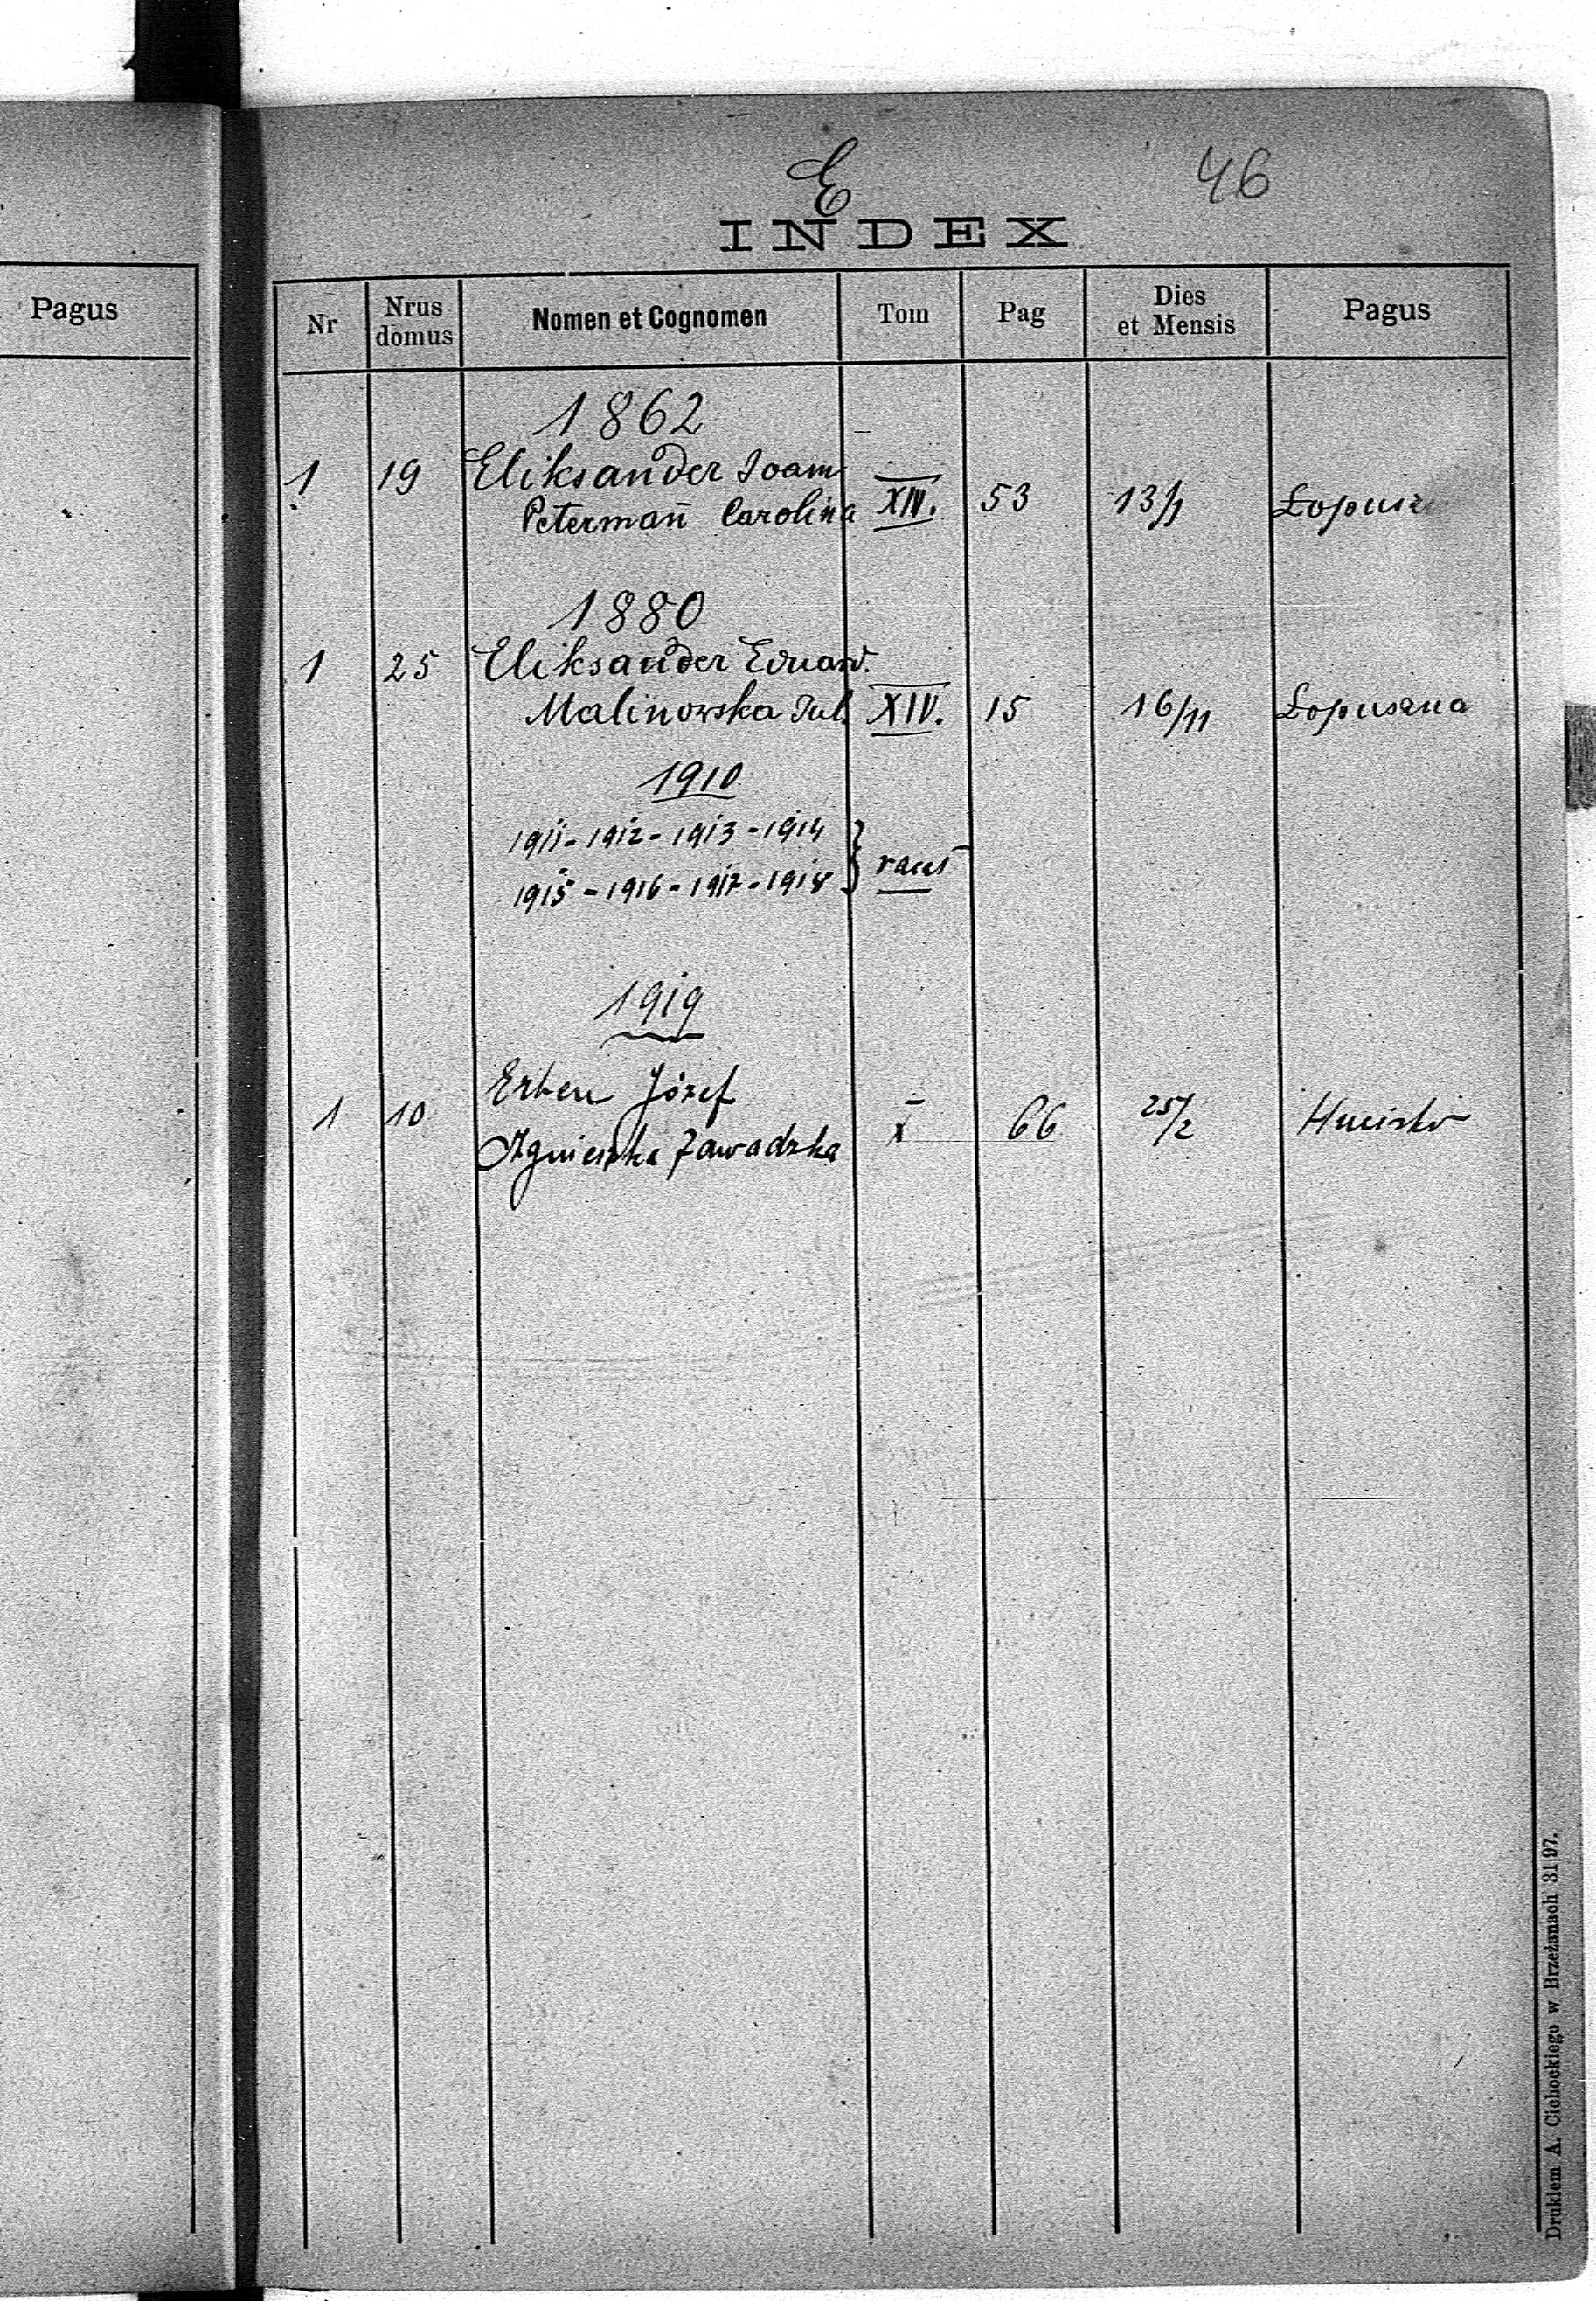 Pagus
E
46
INDEX
Nr Nrus domus Nomen et Cognomen Tom Pag Dies et Mensis Pagus
1862
1 19 Eliksander Joann
Petermañ Carolina XIV. 53 13/1 Łopusz
1880
1 25 Eliksander Eduard.
Malinowska Jul. XIV. 15 16/11 Łopuszna
1910
1911 - 1912 - 1913 - 1914
1915 - 1916 - 1917 - 1918 } vacat
1919
Erben Józef
1 10 X 66 25/2 Hucisko
Agnieszka Zawadzka
Drukiem A. Cichockiego w Brzeżanach 31|97.